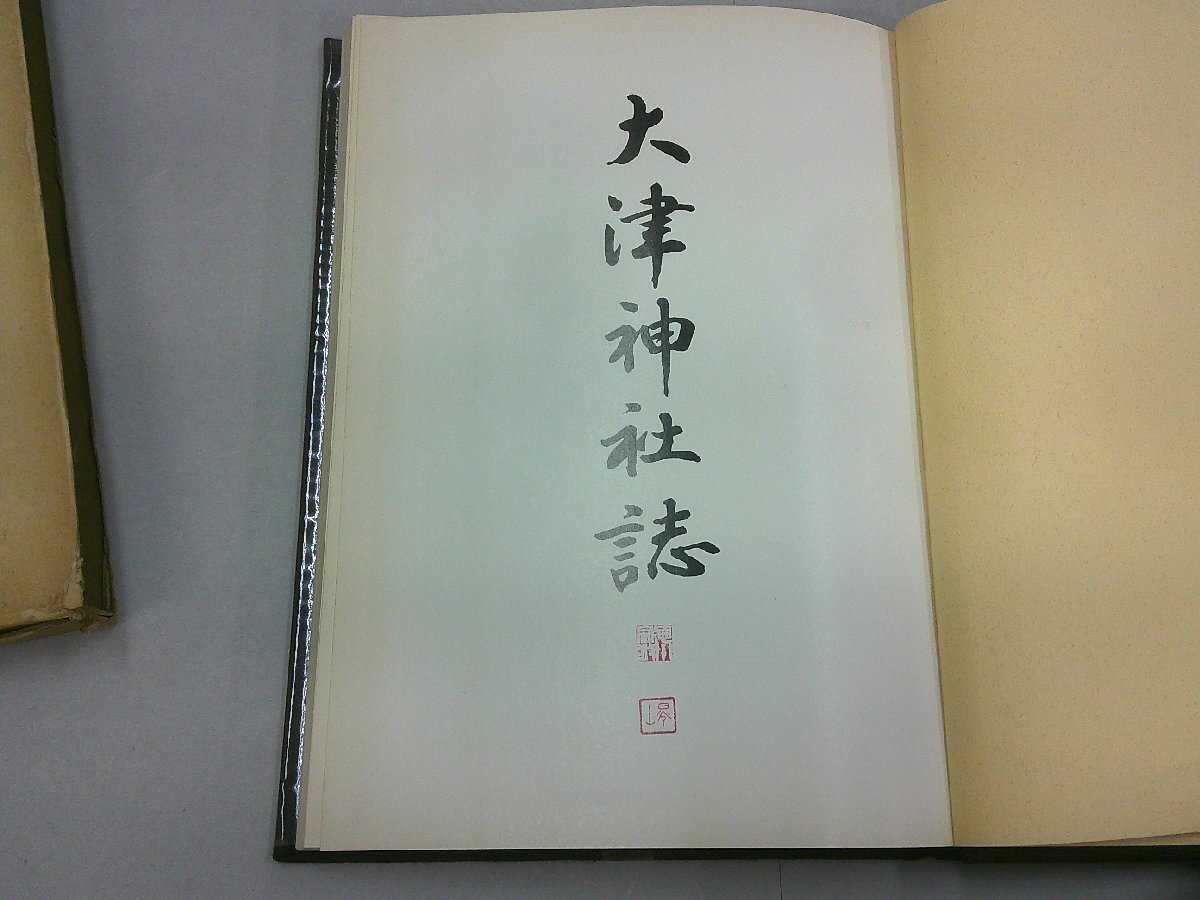 大津神社誌